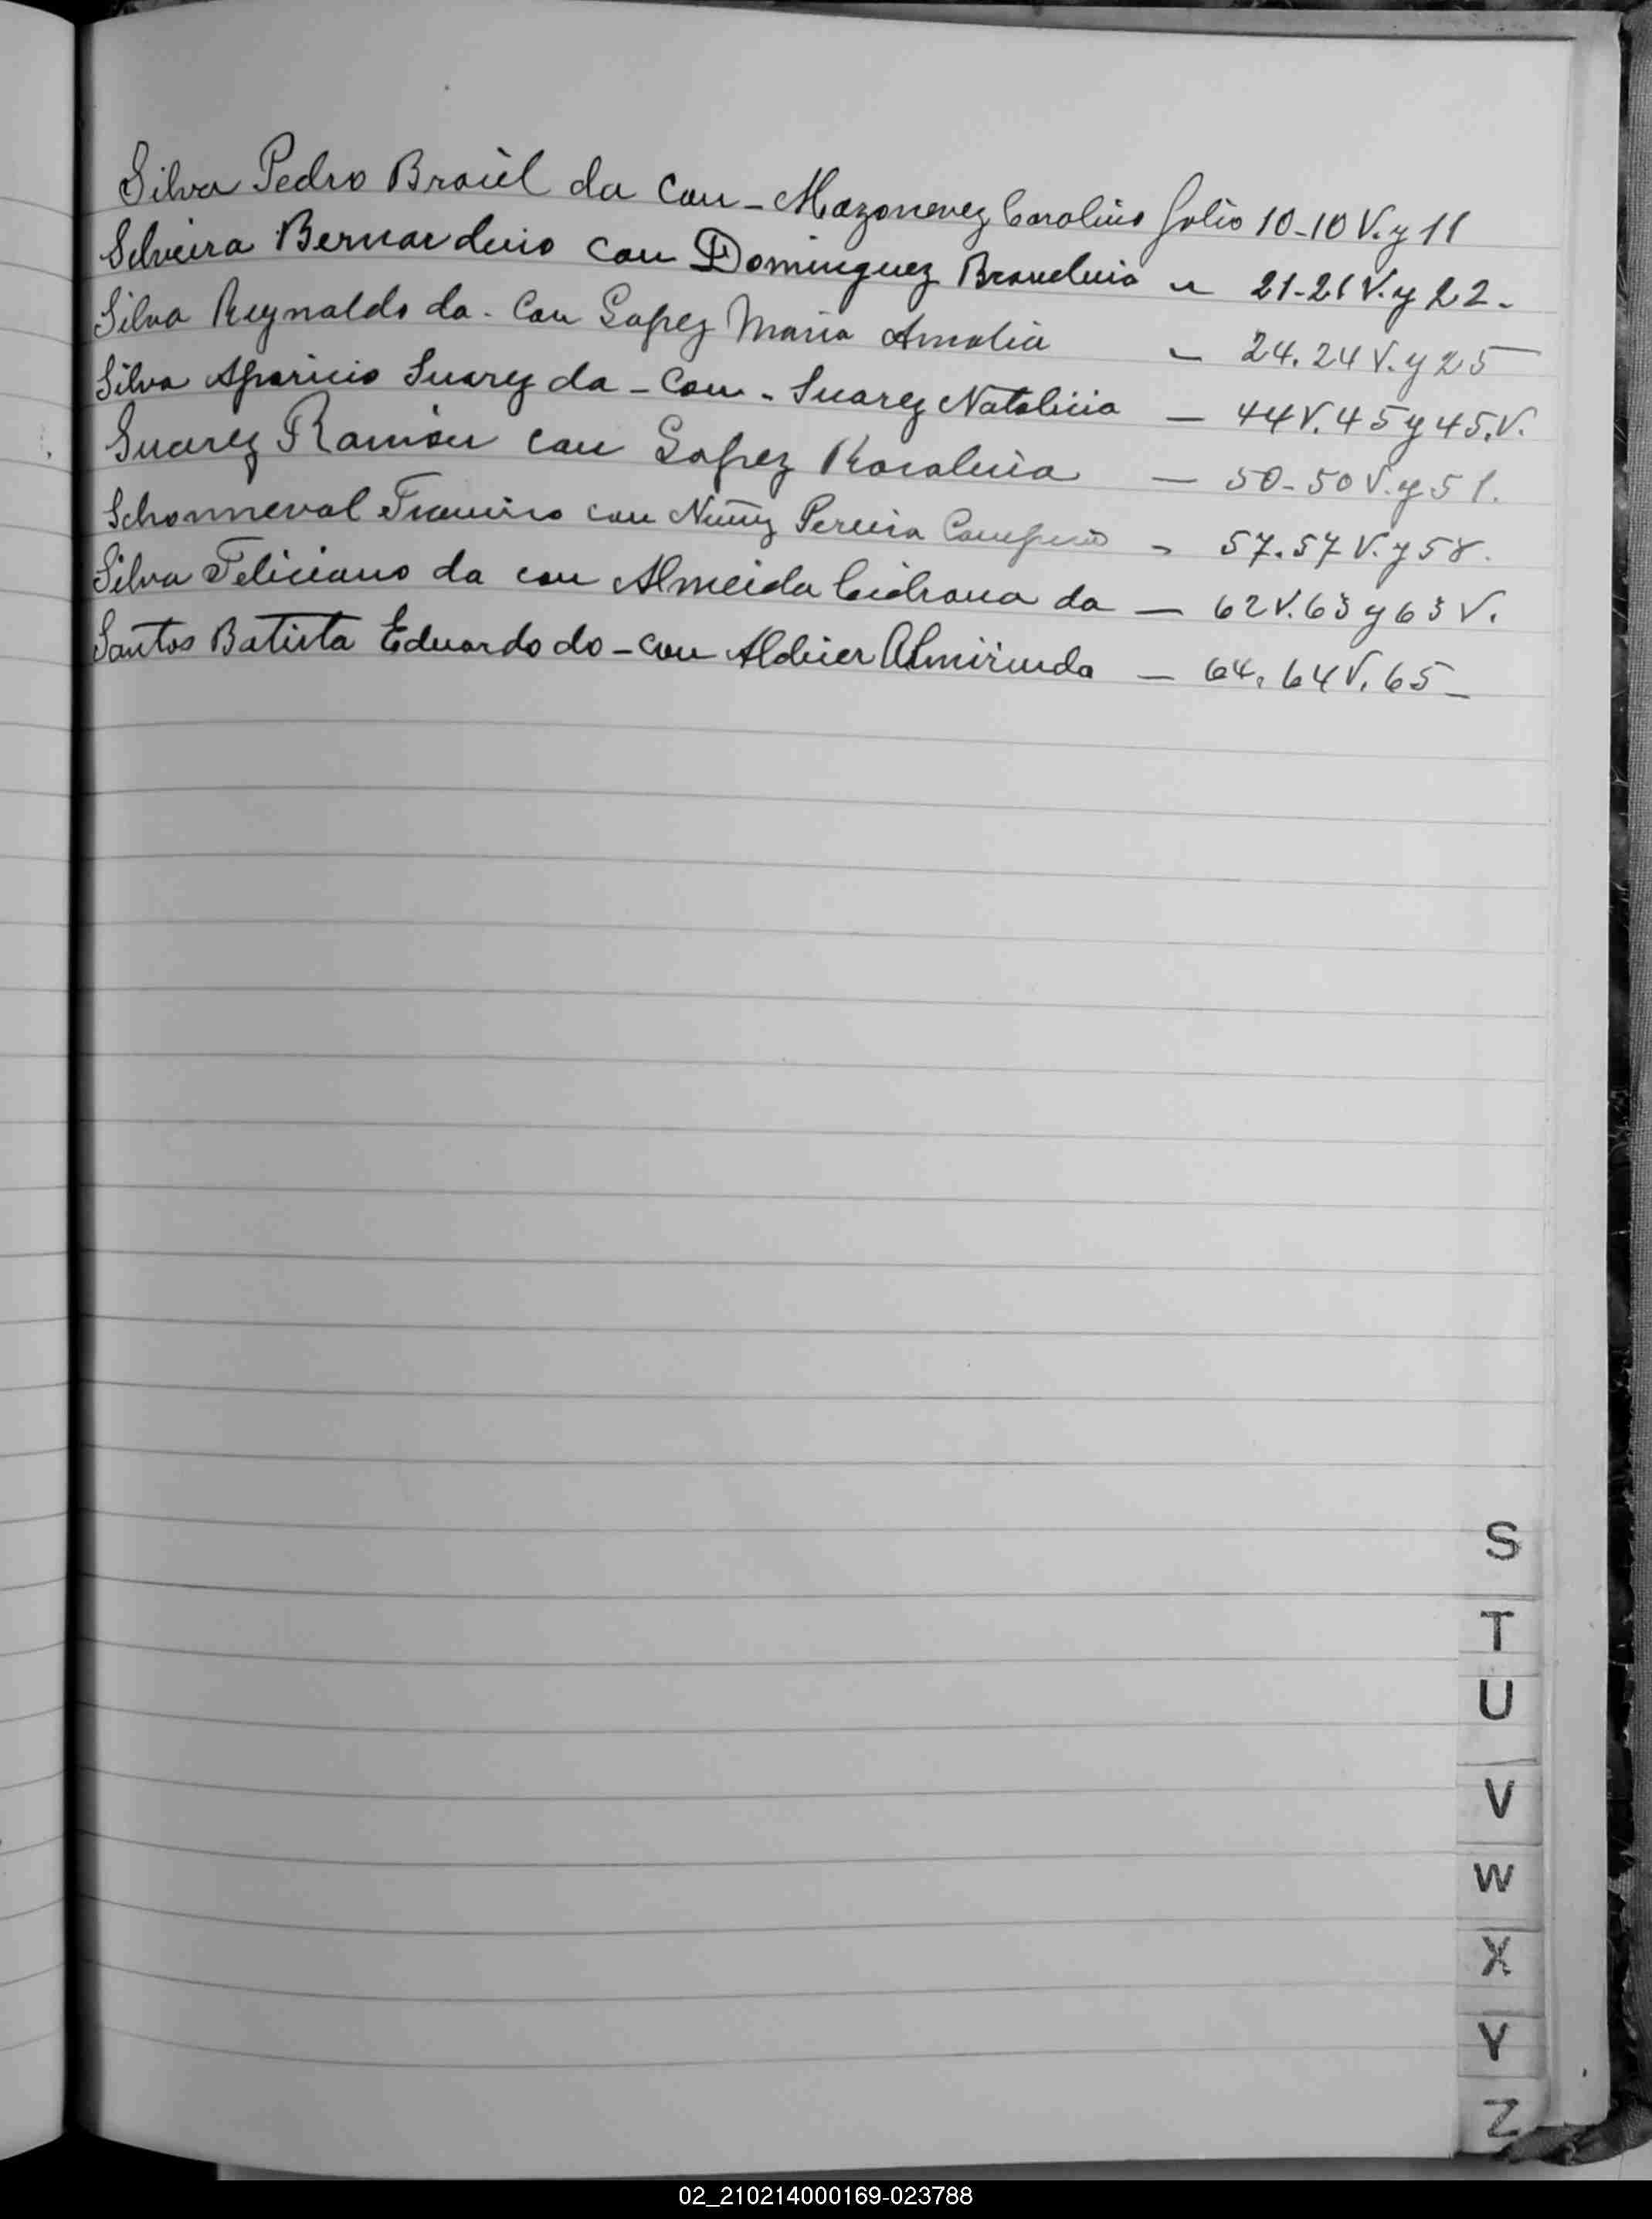 Silva Pedro Brasil da Con - Mazonevez Carolina folio 10-10 V. y 11
Silveira Bernardino Con Dominguez Braudina " 21-21 V. y 22 -
Silva Reynaldo da - Con Lopez Maria Amalia - 24. 24 V. y 25
Silva Aparicio Suarez da - Con - Suarez Natalicia - 44 V. 45 y 45. V.
Suarez Ramón con Lopez Rosalina - 50 - 50 V. y 51.
Schonneval con Nuñez Pereira - 57. 57 V. y 58.
Silva Feliciano da con Almeida da - 62 V. 63 y 63 V.
Santos Batista Eduardo do - con Almirinda - 64. 64 V. 65 -
S
T
U
V
W
X
Y
Z
02_210214000169-023788